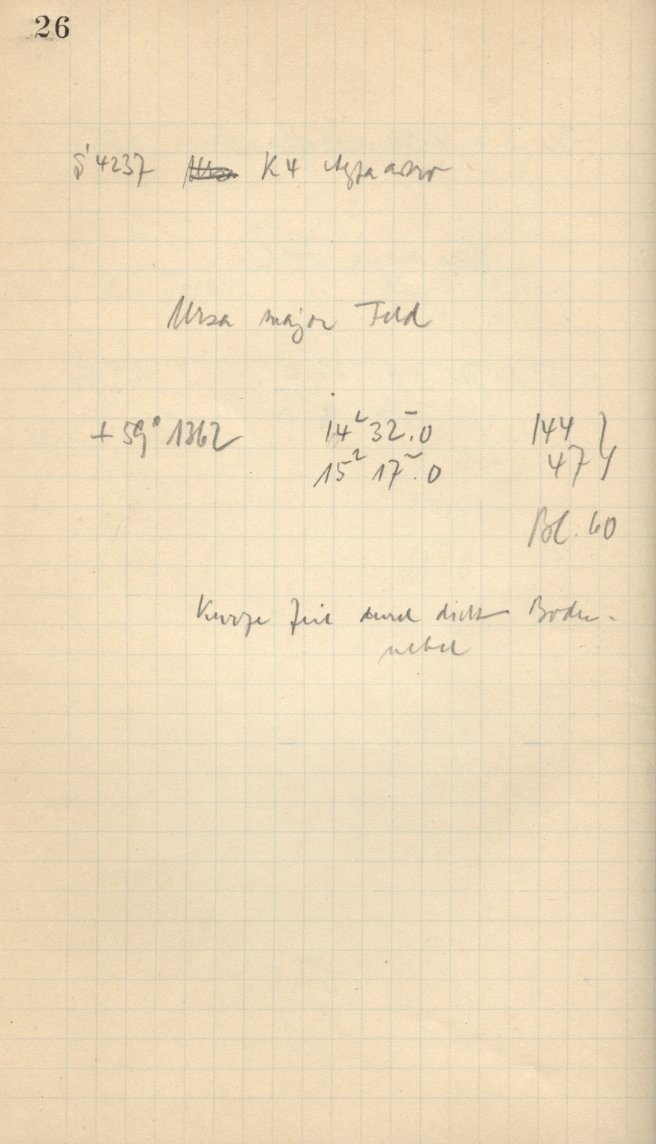 26
S 4237 K4 Agfa astro
Ursa major Feld
+ 59° 1362 14ʰ 32ᵐ.0 144 }
15ʰ 17ᵐ.0 47 }
Bl. 60
Kurze Zeit durch dichten Boden-
nebel